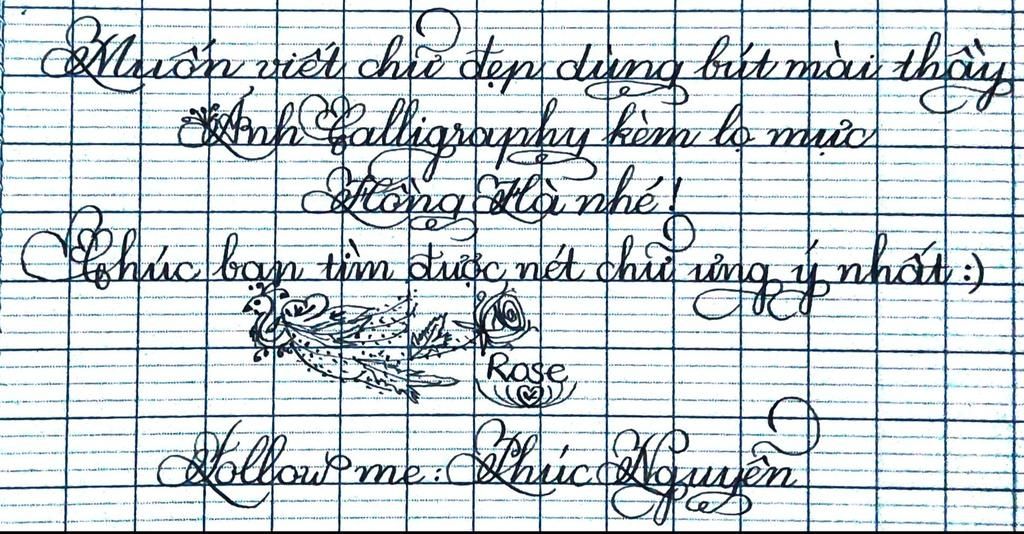 Muốn viết chữ đẹp dùng bút mài thầy
Ánh Calligraphy kèm lọ mực
Hồng Hà nhé!
Chúc bạn tìm được nét chữ ưng ý nhất :)
Rose
Follow me: Phúc Nguyễn